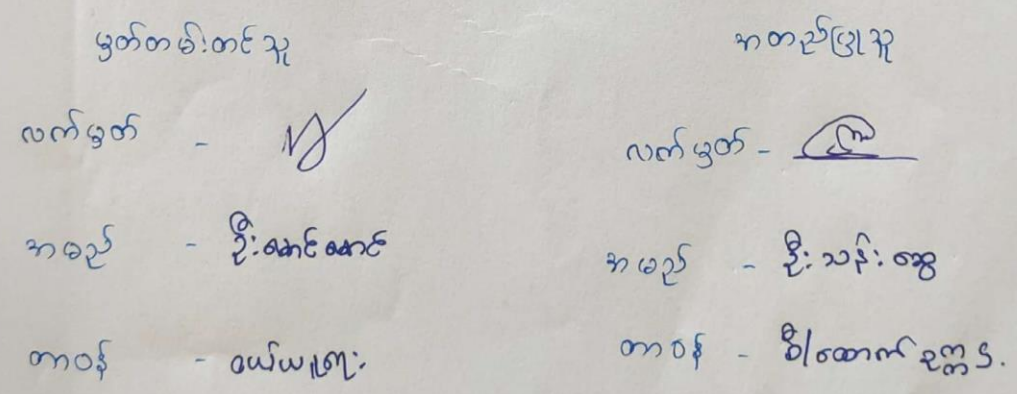 မှတ်တမ်းတင်သူ
လက်မှတ် -
အမည် - ဦးအောင်အောင်
တာဝန် - ဝယ်ယူရေး
အတည်ပြုသူ
လက်မှတ် -
အမည် - ဦးသန်းဆွေ
တာဝန် - ဒု